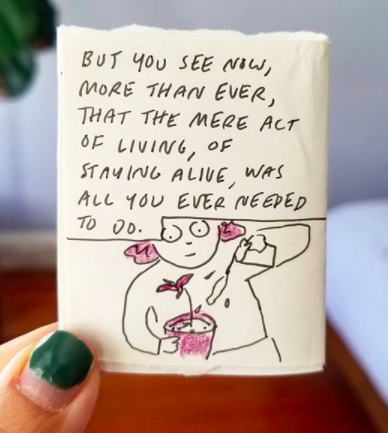 BUT YOU SEE NOW,
MORE THAN EVER,
THAT THE MERE ACT
OF LIVING, OF
STAYING ALIVE, WAS
ALL YOU EVER NEEDED
TO DO.